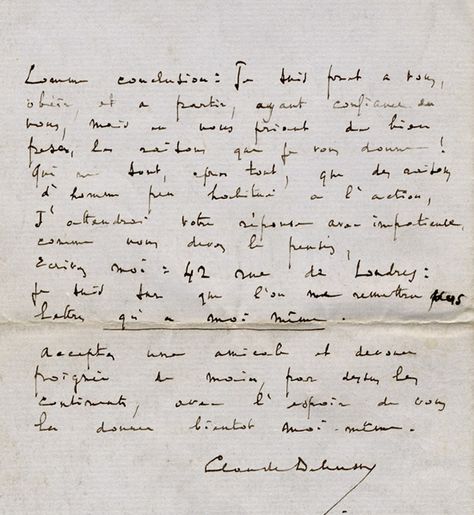 Comme conclusion : Je suis pret a vous,
obéir, et a partir, ayant confiance en
vous, mais en vous priant de bien
peser, les raisons que je vous donne !
Qui ne sont, apres tout, que des raisons
d'homme peu habitué a l'action,
J'attendrai votre réponse avec impatience,
comme vous devez le penser,
Ecrivez moi : 42 rue de Londres :
je suis sur que l'on ne remettra
lettres qu'a moi même .
Acceptez une amicale et devouée
poignée de mains, par dessus les
continents, avec l'espoir de vous
la donner bientot moi-même .
Claude Debussy